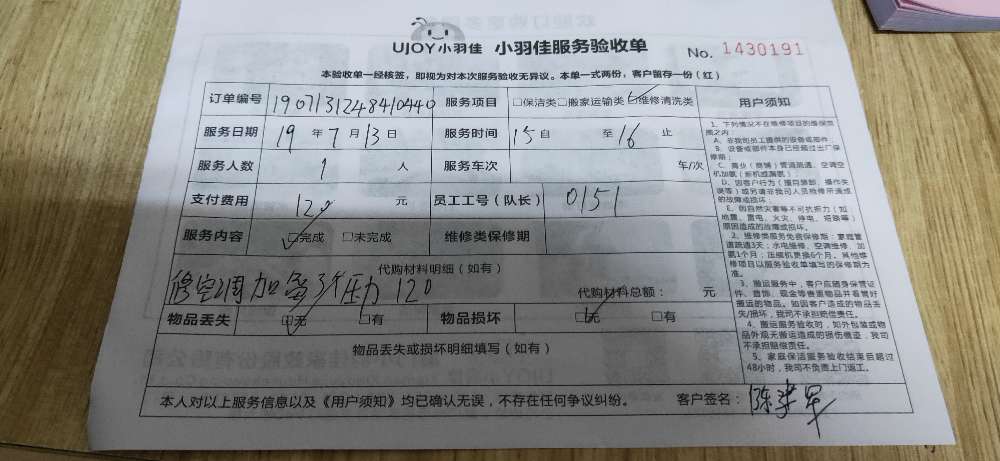 UJOY小羽佳 小羽佳服务验收单 No. 1430191
本验收单一经核签，即视为对本次服务验收无异议。本单一式两份，客户留存一份（红）
订单编号 1907131248410449 服务项目 □保洁类□搬家运输类□维修清洗类
服务日期 19 年 7 月 13 日 服务时间 15 自 至 16 止
服务人数 1 人 服务车次 车/次
支付费用 120 元 员工工号（队长） 0151
服务内容 □完成 □未完成 维修类保修期
代购材料明细（如有）
修空调加 压力 120 代购材料总额： 元
物品丢失 □无 □有 物品损坏 □无 □有
物品丢失或损坏明细填写（如有）
用户须知
1、下列情况不在维修项目的维保范
围之内：
A、非我司员工提供的设备或部件
B、设备或部件本身已经超过出厂保
修期；
C、商业（商铺）管道疏通、空调空
机加氨（新机或漏氨）
D、因客户行为（擅自拆卸、操作失
误等）或另请非我司人员检修所造成
的故障或损坏
E、因自然灾害等不可抗拒力（如
地震、雷电、火灾、停电、塔陷等）
原因造成的故障或损坏。
2、维修类服务免费保修期：家庭管
道疏通3天；水电维修、空调维修、加
氨1个月；压缩机更换6个月。其他维
修项目以服务验收单填写的保修期为
准。
3、搬运服务中，客户应随身保管证
件、首饰、现金等贵重物品并看管好
搬运的物品。如因客户造成的物品丢
失/损坏，我司不承担赔偿责任。
4、搬运服务验收时，如外包装或物
品外观无搬运造成的损伤痕迹，我司
不承担赔偿责任。
5、家庭保洁服务验收结束后超过
48小时，我司不负责上门返工。
本人对以上服务信息以及《用户须知》均已确认无误，不存在任何争议纠纷。 客户签名：